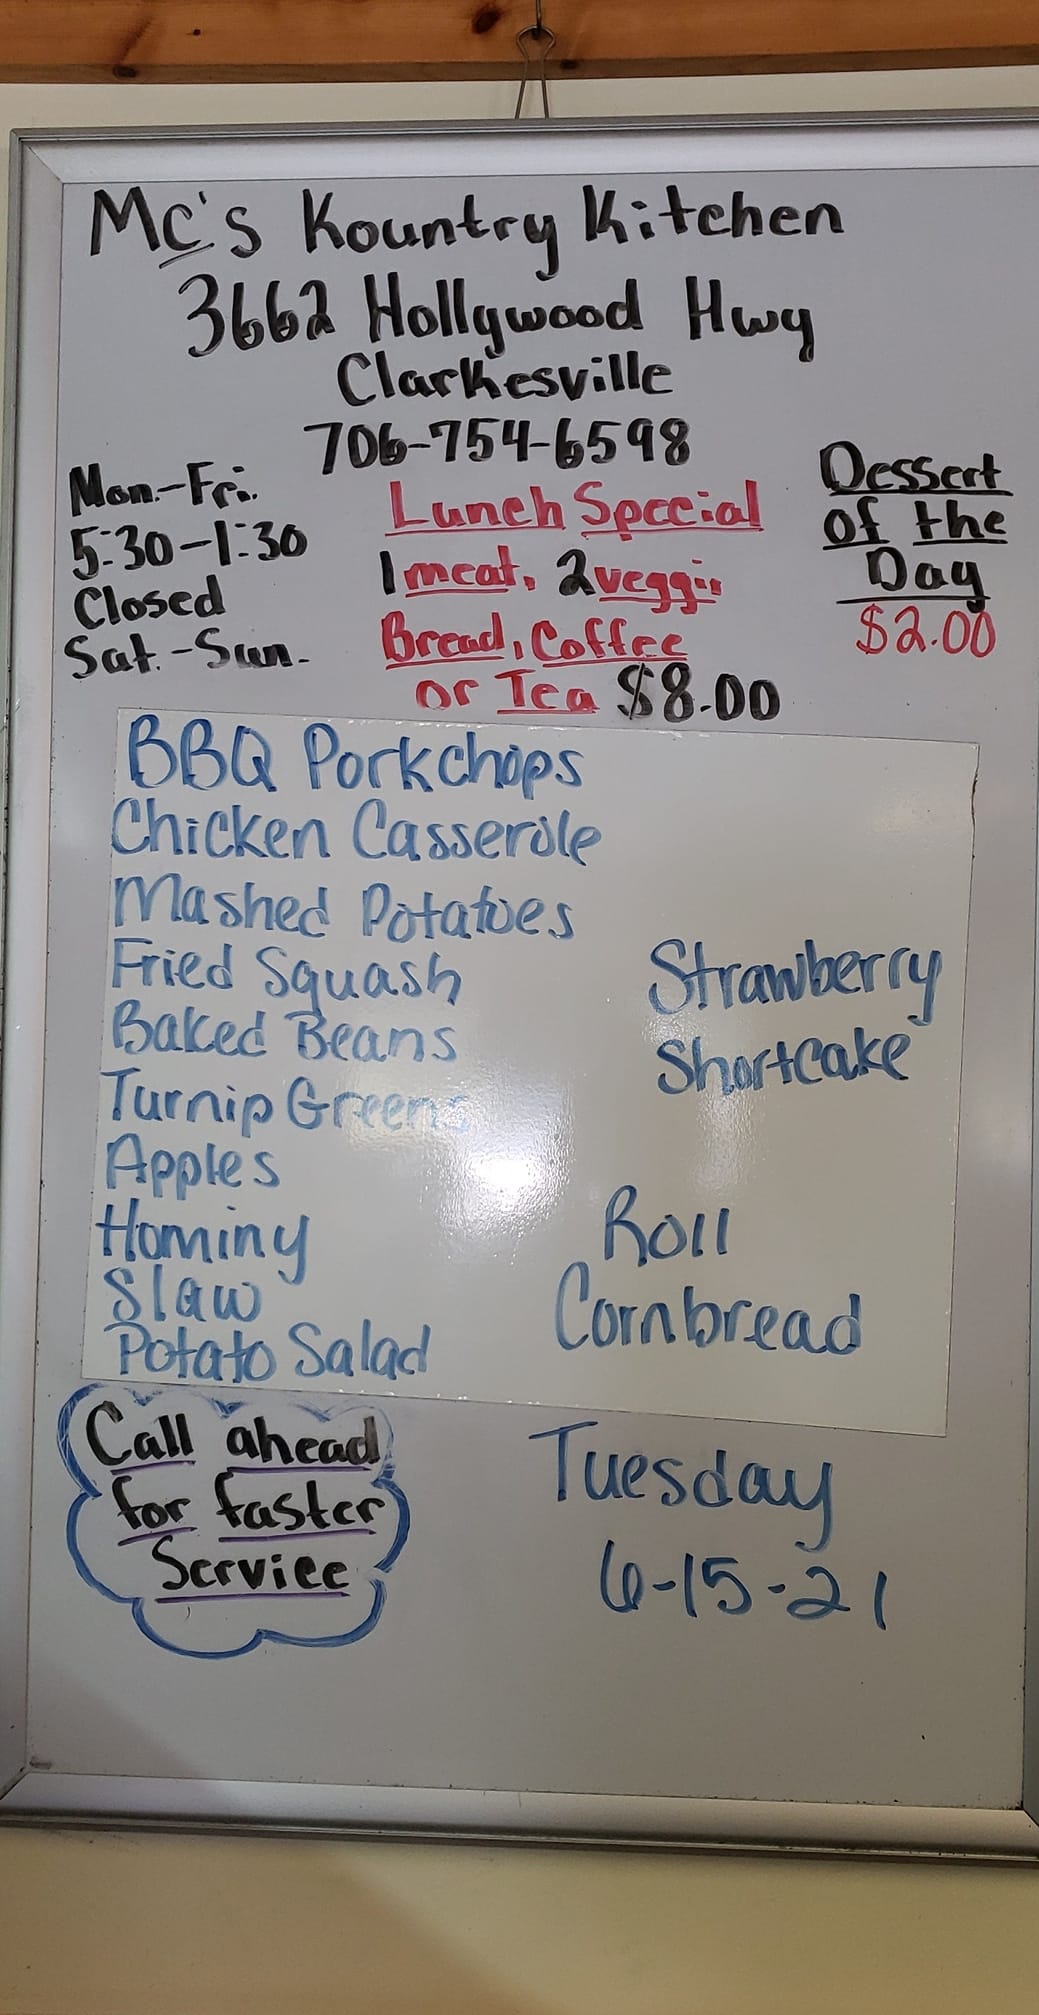 Mc's Kountry Kitchen
3662 Hollywood Hwy
Clarkesville
706-754-6598
Mon.-Fri.
5:30-1:30
Closed
Sat.-Sun.
Lunch Special
1 meat, 2 veggis
Bread, Coffee
or Tea $8.00
Dessert
of the
Day
$2.00
BBQ Porkchops
Chicken Casserole
Mashed Potatoes
Fried Squash
Baked Beans
Turnip Greens
Apples
Hominy
Slaw
Potato Salad
Strawberry
Shortcake
Roll
Cornbread
Call ahead
for faster
Service
Tuesday
6-15-21